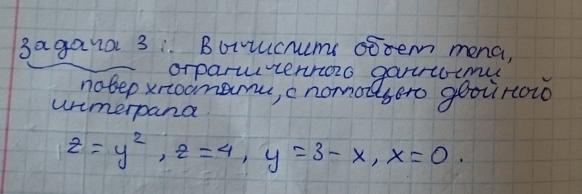 Задача 3: Вычислить объем тела,
ограниченного данными
поверхностями, с помощью двойного
интеграла.
z = y², z = 4, y = 3 - x, x = 0.